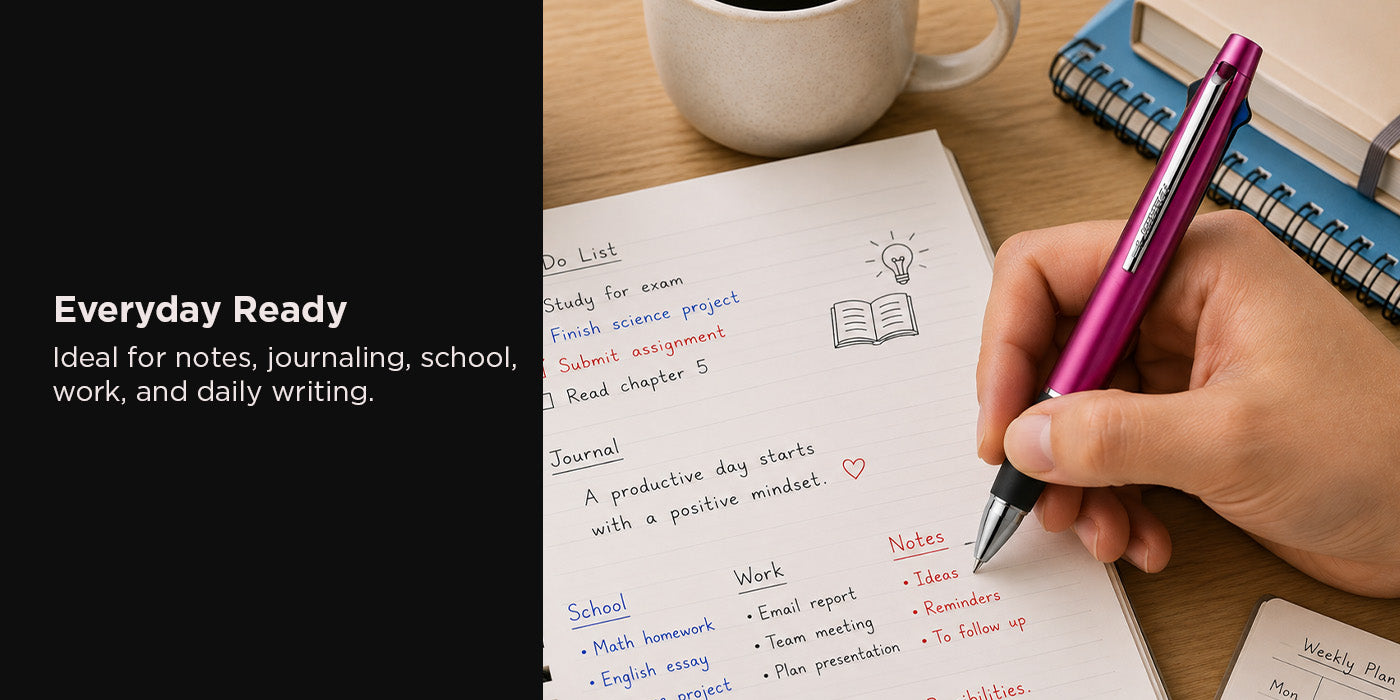 Everyday Ready
Ideal for notes, journaling, school,
work, and daily writing.
Do List
Study for exam
Finish science project
Submit assignment
Read chapter 5
Journal
A productive day starts
with a positive mindset.
School
• Math homework
• English essay
project
Work
• Email report
• Team meeting
• Plan presentation
Notes
• Ideas
• Reminders
• To follow up
Weekly Plan
Mon